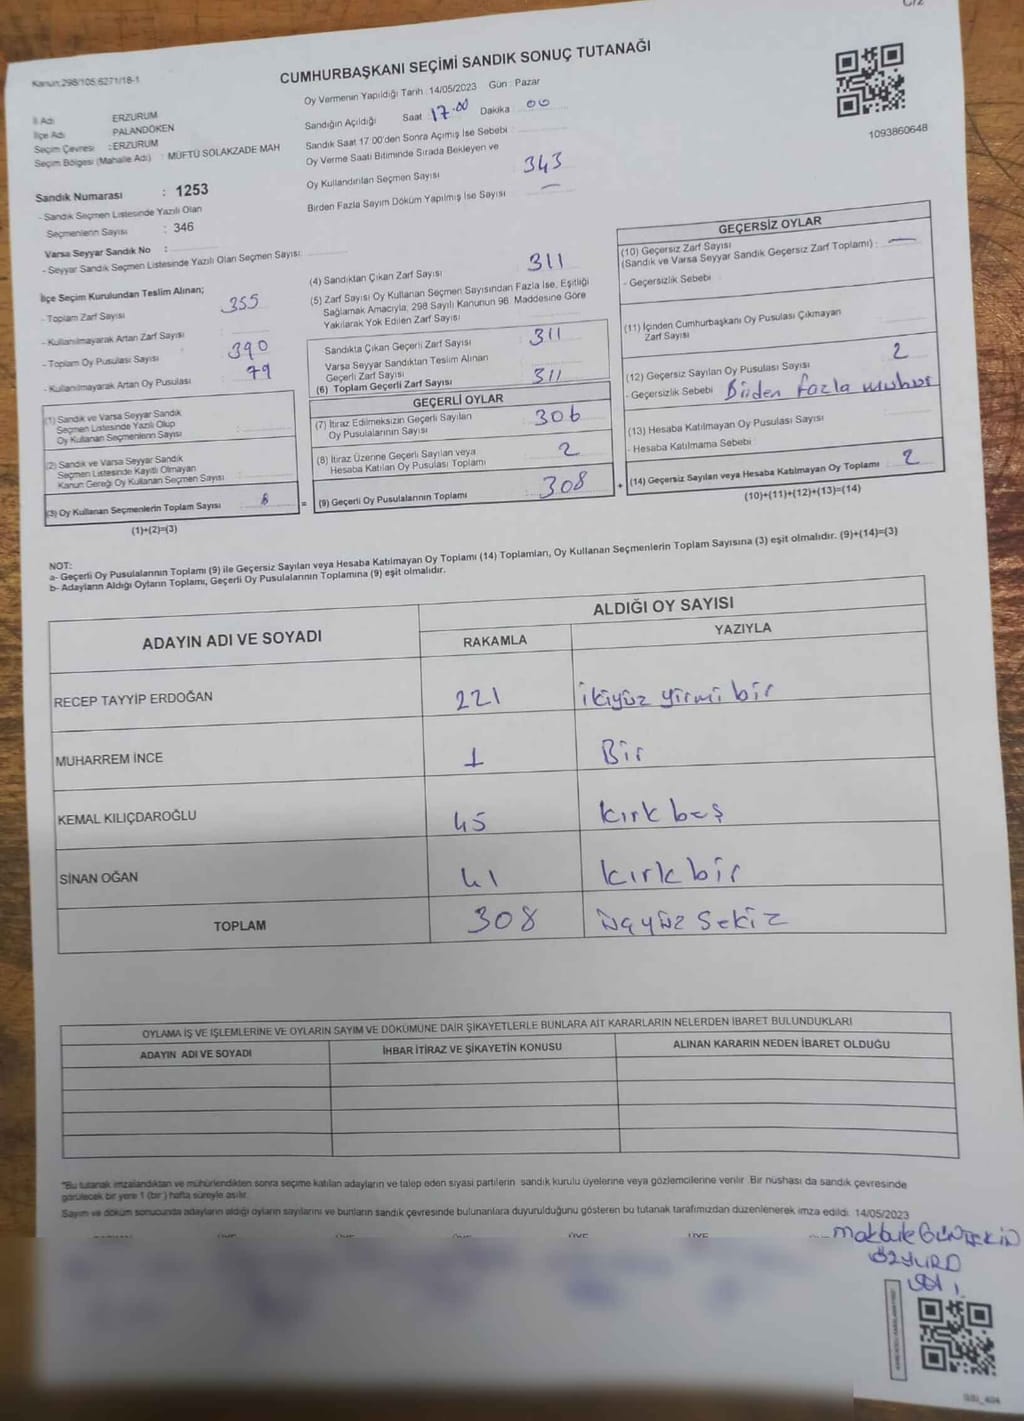 Kanun:298/105;6271/18-1
CUMHURBAŞKANI SEÇİMİ SANDIK SONUÇ TUTANAĞI
Oy Vermenin Yapıldığı Tarih : 14/05/2023 Gün : Pazar
İl Adı : ERZURUM
İlçe Adı : PALANDÖKEN
Seçim Çevresi : ERZURUM
Seçim Bölgesi (Mahalle Adı) : MÜFTÜ SOLAKZADE MAH
Sandık Numarası : 1253
- Sandık Seçmen Listesinde Yazılı Olan
Seçmenlerin Sayısı : 346
Varsa Seyyar Sandık No :
- Seyyar Sandık Seçmen Listesinde Yazılı Olan Seçmen Sayısı:
Sandığın Açıldığı Saat : 17.00 Dakika : 00
Sandık Saat 17:00'den Sonra Açımış İse Sebebi :
Oy Verme Saati Bitiminde Sırada Bekleyen ve
Oy Kullandırılan Seçmen Sayısı : 343
Birden Fazla Sayım Döküm Yapılmış İse Sayısı : —
1093860648
İlçe Seçim Kurulundan Teslim Alınan;
- Toplam Zarf Sayısı : 355
- Kullanılmayarak Artan Zarf Sayısı :
- Toplam Oy Pusulası Sayısı : 390
- Kullanılmayarak Artan Oy Pusulası : 79
(1) Sandık ve Varsa Seyyar Sandık
Seçmen Listesinde Yazılı Olup
Oy Kullanan Seçmenlerin Sayısı :
(2) Sandık ve Varsa Seyyar Sandık
Seçmen Listesinde Kayıtlı Olmayan
Kanun Gereği Oy Kullanan Seçmen Sayısı :
(3) Oy Kullanan Seçmenlerin Toplam Sayısı :
(1)+(2)=(3)
(4) Sandıktan Çıkan Zarf Sayısı : 311
(5) Zarf Sayısı Oy Kullanan Seçmen Sayısından Fazla İse, Eşitliği
Sağlamak Amacıyla, 298 Sayılı Kanunun 98. Maddesine Göre
Yakılarak Yok Edilen Zarf Sayısı :
Sandıkta Çıkan Geçerli Zarf Sayısı : 311
Varsa Seyyar Sandıktan Teslim Alınan
Geçerli Zarf Sayısı :
(6) Toplam Geçerli Zarf Sayısı : 311
GEÇERLİ OYLAR
(7) İtiraz Edilmeksizin Geçerli Sayılan
Oy Pusulalarının Sayısı : 306
(8) İtiraz Üzerine Geçerli Sayılan veya
Hesaba Katılan Oy Pusulası Toplamı : 2
= (9) Geçerli Oy Pusulalarının Toplamı : 308
GEÇERSİZ OYLAR
(10) Geçersiz Zarf Sayısı
(Sandık ve Varsa Seyyar Sandık Geçersiz Zarf Toplamı) : —
- Geçersizlik Sebebi :
(11) İçinden Cumhurbaşkanı Oy Pusulası Çıkmayan
Zarf Sayısı :
(12) Geçersiz Sayılan Oy Pusulası Sayısı : 2
- Geçersizlik Sebebi : Birden fazla mühür
(13) Hesaba Katılmayan Oy Pusulası Sayısı :
- Hesaba Katılmama Sebebi :
+ (14) Geçersiz Sayılan veya Hesaba Katılmayan Oy Toplamı : 2
(10)+(11)+(12)+(13)=(14)
NOT:
a- Geçerli Oy Pusulalarının Toplamı (9) ile Geçersiz Sayılan veya Hesaba Katılmayan Oy Toplamı (14) Toplamları, Oy Kullanan Seçmenlerin Toplam Sayısına (3) eşit olmalıdır. (9)+(14)=(3)
b- Adayların Aldığı Oyların Toplamı, Geçerli Oy Pusulalarının Toplamına (9) eşit olmalıdır.
ADAYIN ADI VE SOYADI ALDIĞI OY SAYISI
RAKAMLA YAZIYLA
RECEP TAYYİP ERDOĞAN 221 ikiyüz yirmi bir
MUHARREM İNCE 1 Bir
KEMAL KILIÇDAROĞLU 45 kırk beş
SİNAN OĞAN 41 kırk bir
TOPLAM 308 üçyüz sekiz
OYLAMA İŞ VE İŞLEMLERİNE VE OYLARIN SAYIM VE DÖKÜMÜNE DAİR ŞİKAYETLERLE BUNLARA AİT KARARLARIN NELERDEN İBARET BULUNDUKLARI
ADAYIN ADI VE SOYADI İHBAR İTİRAZ VE ŞİKAYETİN KONUSU ALINAN KARARIN NEDEN İBARET OLDUĞU
"Bu tutanak imzalandıktan ve mühürlendikten sonra seçime katılan adayların ve talep eden siyasi partilerin sandık kurulu üyelerine veya gözlemcilerine verilir. Bir nüshası da sandık çevresinde
görülecek bir yere 1 (bir) hafta süreyle asılır.
Sayım ve döküm sonucunda adayların aldığı oyların sayılarını ve bunların sandık çevresinde bulunanlara duyurulduğunu gösteren bu tutanak tarafımızdan düzenlenerek imza edildi. 14/05/2023
ÜYE ÜYE ÜYE ÜYE ÜYE
Makbule
ÖZYURD